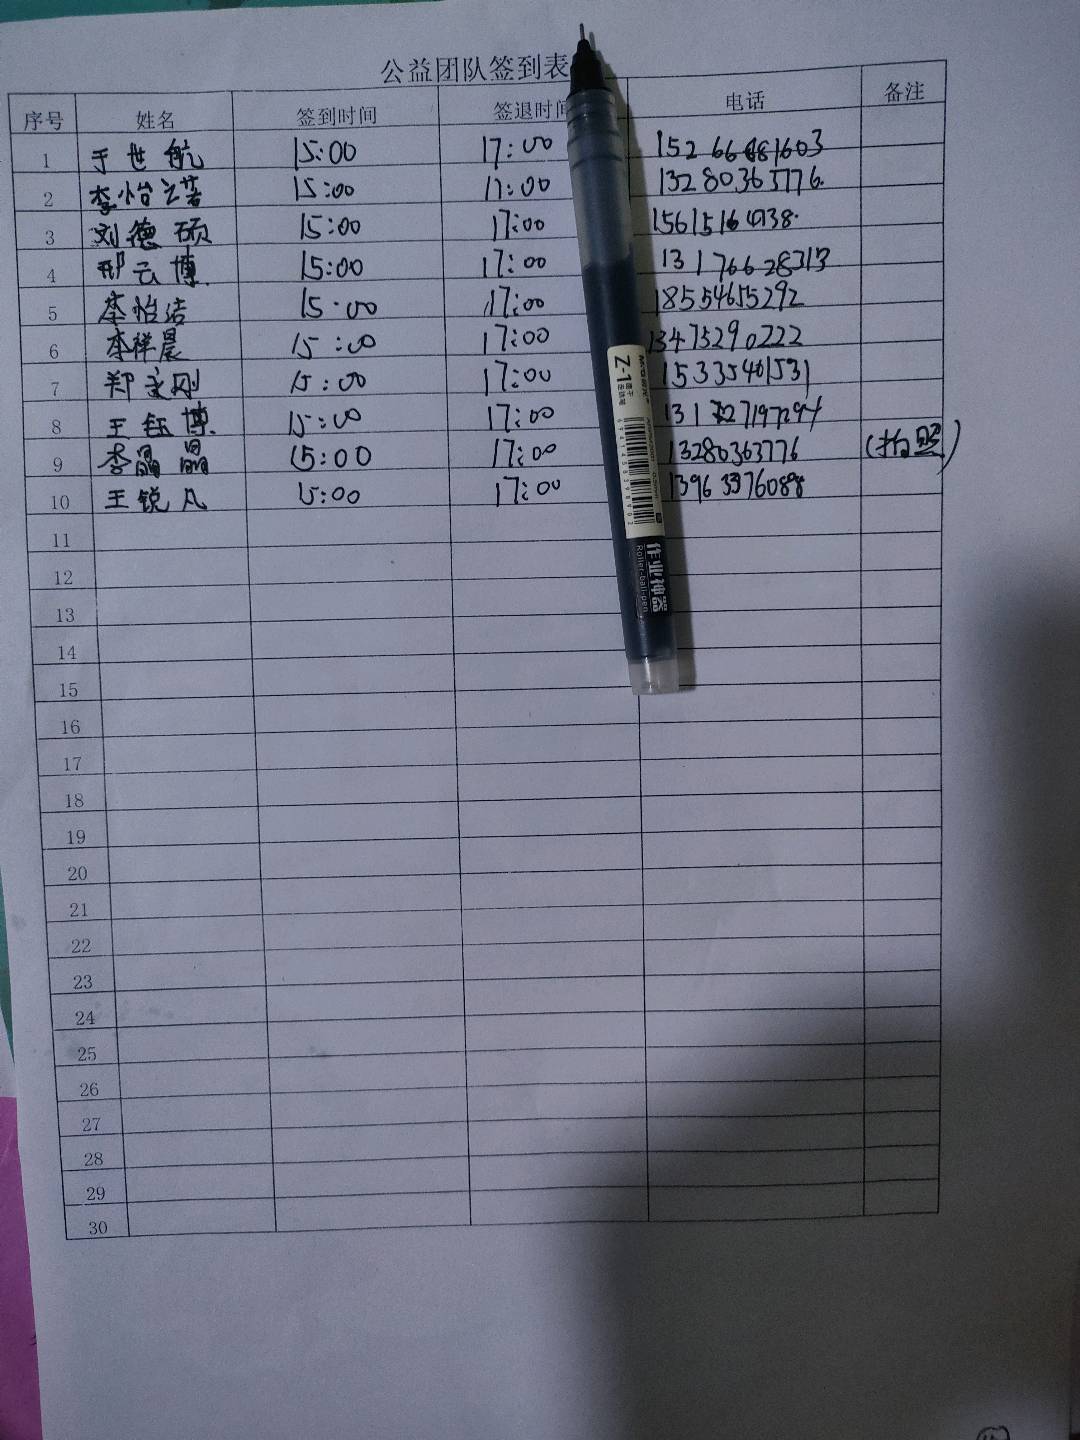 公益团队签到表
序号 姓名 签到时间 签退时间 电话 备注
1 于世航 15:00 17:00 15266681603
2 李怡之诺 15:00 17:00 13280363776.
3 刘德硕 15:00 17:00
4 邢云博 15:00 17:00 13176628313
5 李怡洁 15:00 17:00 18554655292
6 李祥晨 15:00 17:00 13475290222
7 郑文刚 15:00 17:00 15335461531
8 王钰博 15:00 17:00
9 李晶晶 15:00 17:00 13280363776 (拍照)
10 王锐凡 15:00 17:00 13963376088
11
12
13
14
15
16
17
18
19
20
21
22
23
24
25
26
27
28
29
30
M&G
Z-1
作业神器
Roller-ball-pen